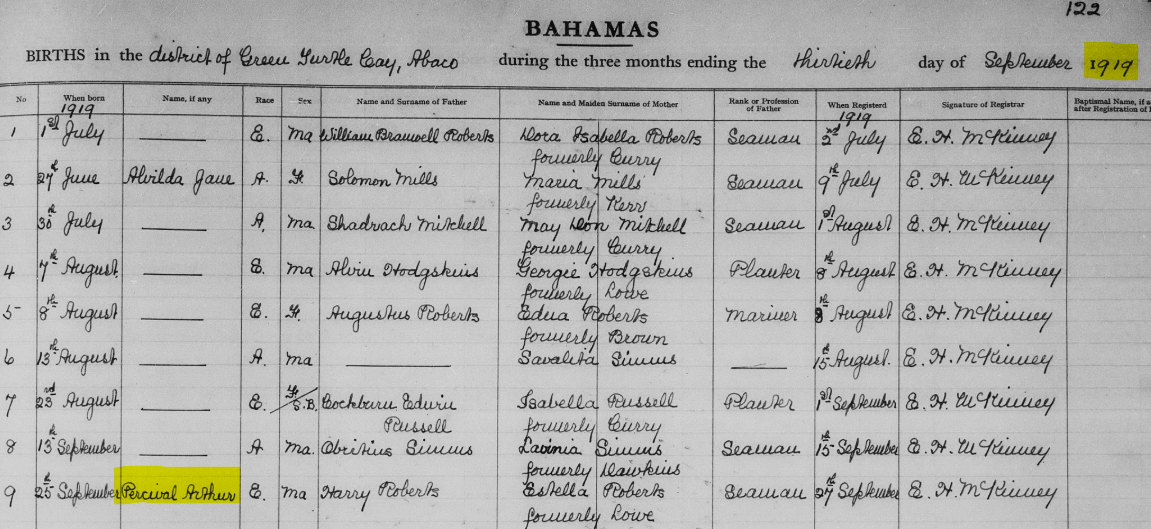 122
BAHAMAS
BIRTHS in the district of Green Turtle Cay, Abaco during the three months ending the thirtieth day of September 1919
No When born Name, if any Race Sex Name and Surname of Father Name and Maiden Surname of Mother Rank or Profession of Father When Registerd Signature of Registrar Baptismal Name, if a
after Registration of
1919 1919
1 1st July — E. Ma William Bramwell Roberts Dora Isabella Roberts Seaman 2nd July E. H. McKinney
formerly Curry
2 27th June Alvilda Jane A. F. Solomon Mills Maria Mills Seaman 9th July E. H. McKinney
formerly Kerr
3 30th July — A. Ma Shadrach Mitchell May Mitchell Seaman 1st August E. H. McKinney
formerly Curry
4 7th August. — E. Ma Alvin Hodgskins Georgie Hodgskins Planter 8th August E. H. McKinney
formerly Lowe
5 8th August — E. F. Augustus Roberts Edna Roberts Mariner 8th August E. H. McKinney
formerly Brown
6 13th August — A. Ma — Savalita Simms — 15th August. E. H. McKinney
7 23rd August — E. F. S.B. Cockburn Edwin Isabella Russell Planter 1st September E. H. McKinney
Russell formerly Curry
8 13th September — A Ma. Simms Lavinia Simms Seaman 15th September E. H. McKinney
formerly Hawkins
9 25th September Percival Arthur E. Ma Harry Roberts Estella Roberts Seaman 27th September E. H. McKinney
formerly Lowe